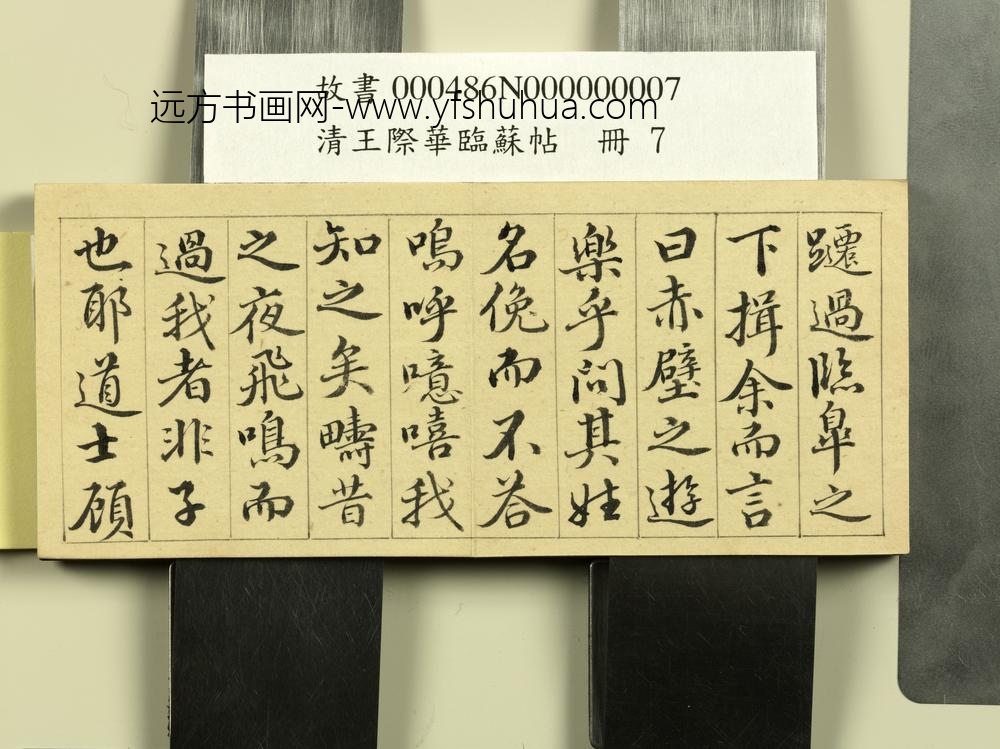 故書 000486N000000007
远方书画网-www.yfshuhua.com
清王際華臨蘇帖 冊 7
蹮過臨皐之
下揖余而言
曰赤壁之遊
樂乎問其姓
名俛而不答
嗚呼噫嘻我
知之矣疇昔
之夜飛鳴而
過我者非子
也耶道士顧